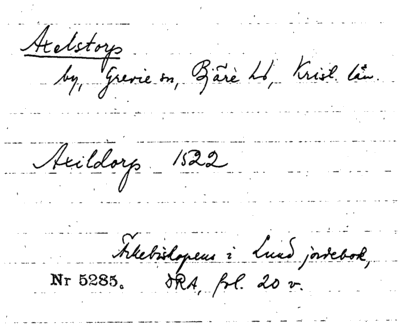 Axelstorp
by, Grevie sn, Bjäre hd, Krist. län.
Axildorp 1522
Ärkebiskopens i Lund jordebok,
Nr 5285. DRA, fol. 20 v.